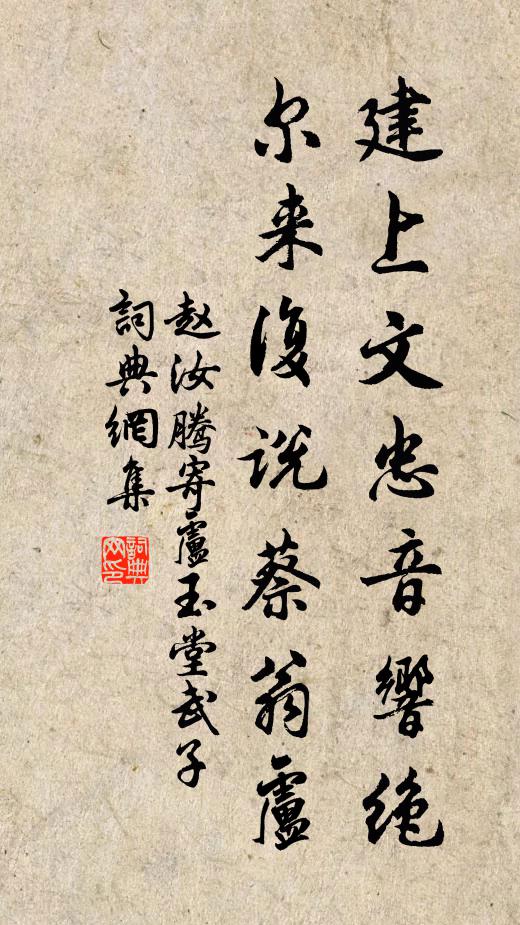 建上文忠音響绝
尔来復说蔡翁盧
赵汝騰寄盧玉堂武子
詞典網集
詞典网印